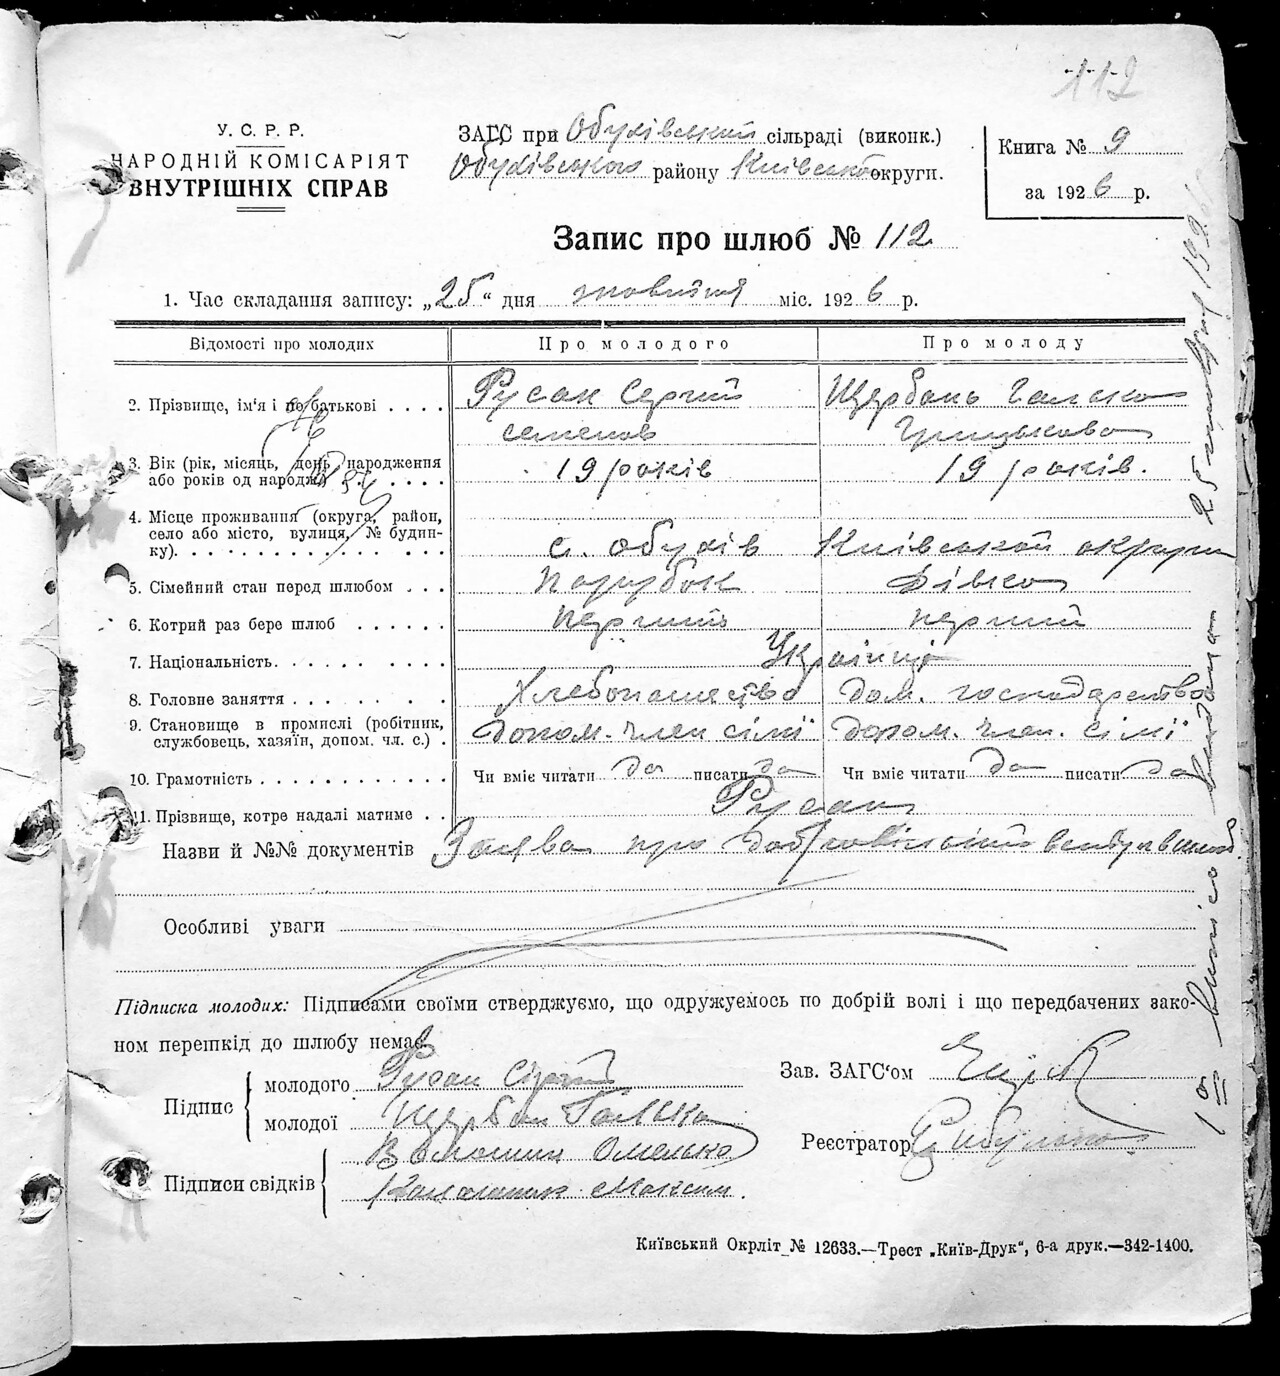 112
У. С. Р. Р.
НАРОДНІЙ КОМІСАРІЯТ
ВНУТРІШНІХ СПРАВ
ЗАГС при Обухівський сільраді (виконк.)
Обухівського району Київської округи.
Книга № 9
за 1926 р.
Запис про шлюб № 112
1. Час складання запису: „25“ дня жовтня міс. 1926 р.
Відомості про молодих Про молодого Про молоду
2. Прізвище, ім'я і по батькові . . . . Русан Сергій Щербань Галька
семенов Грицькова
3. Вік (рік, місяць, день народження 19 років 19 років.
або років од народж.) . . . . .
4. Місце проживання (округа, район,
село або місто, вулиця, № будин-
ку). . . . . . . . . . . . . с. Обухів Київської округи
5. Сімейний стан перед шлюбом . . . Парубок Дівка
6. Котрий раз бере шлюб . . . . . . перший перший
7. Національність. . . . . . . . . Українці
8. Головне заняття . . . . . . . . Хлебопашество дом. господарство
9. Становище в промислі (робітник, допом. член сімї допом. член. сімї
службовець, хазяїн, допом. чл. с.) .
10. Грамотність . . . . . . . . . . Чи вміє читати да писати да Чи вміє читати да писати да
11. Прізвище, котре надалі матиме . . Русан
Назви й №№ документів Заява про добровільний
Особливі уваги
Підписка молодих: Підписами своїми стверджуємо, що одружуємось по добрій волі і що передбачених зако-
ном перешкід до шлюбу немає.
Підпис молодого Русан Сергій
молодої Щербан Галька
Підписи свідків Волошин Омелько
Максим.
Зав. ЗАГС'ом
Реєстратор Цибулько
Київський Окрліт № 12633.—Трест „Київ-Друк“, 6-а друк.—342-1400.